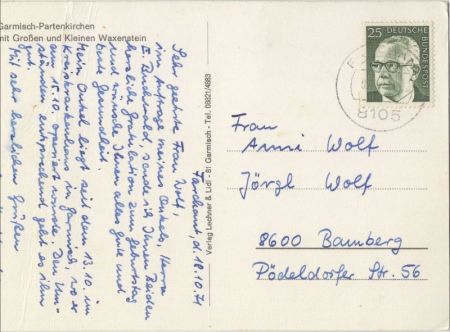 Garmisch-Partenkirchen
mit Großen und Kleinen Waxenstein
Farchant d. 18.10.71
Sehr geehrte Frau Wolf,
im Auftrage meines Onkels, Herrn
E. Buchwald, sende ich Ihnen beiden
herzliche Gratulation zum Geburtstag
und wünsche Ihnen alles Gute und
beste Gesundheit.
Mein Onkel liegt seit dem 13.10. im
Kreiskrankenhaus in Garmisch, wo er
am 15.10. operiert wurde. Den Um-
ständen entsprechend geht es ihm
gut.
Mit sehr herzlichen Grüßen
Verlag Lechner & Lidl · 81 Garmisch · Tel. 08821/4883
25
DEUTSCHE
BUNDESPOST
8105
Frau
Anni Wolf
Jörgl Wolf
8600 Bamberg
Pödeldorfer Str. 56